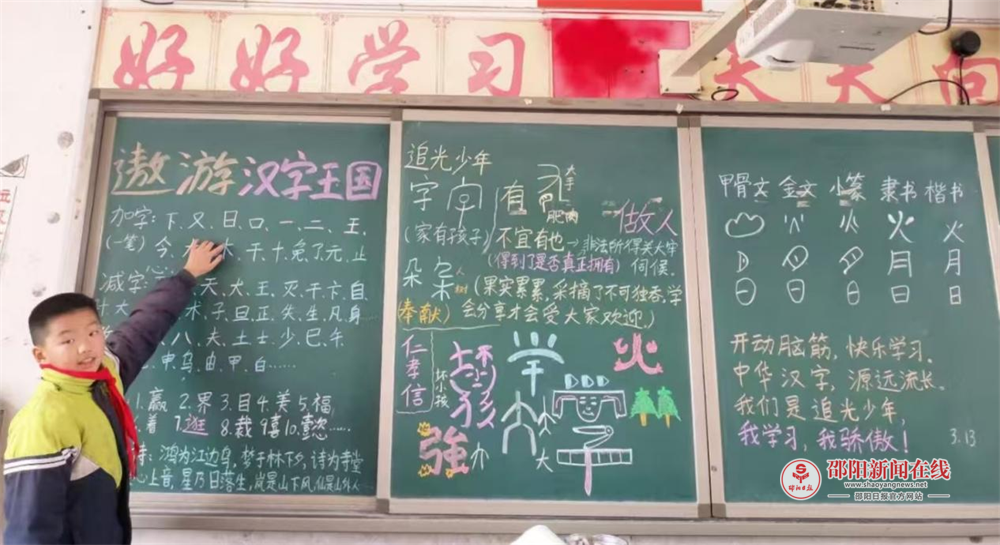 好好学习 天天向
遨游汉字王国
加字:下、又、日、口、一、二、王、
(一笔)今、木、干、十、免、了、元、止
心
减字:天、大、王、灭、干、卞、自、
大、术、子、旦、正、失、生、凡、身、
八、夫、土、士、少、巳、午、
申、乌、由、甲、白……
1.赢 2.界 3.目 4.美 5.福,
着 7.逛 8.裁 9.喜 10.懿……
诗:鸿为江边鸟,梦于林下夕,诗为寺堂
心上音,星乃日落生,岚是山下风,仙是山外人
追光少年
字 字
(家有孩子)
有
大手
肥肉
做人
不宜有也→非法所得关大牢
(得到了是否真正拥有)伺候.
朵 朵
人
树
(果实累累,采摘了不可独吞,学
(奉献) 会分享才会受大家欢迎.)
仁孝信
坏小孩
学
火
强
大
甲骨文 金文 小篆 隶书 楷书
火 火
月 月
日 日
开动脑筋,快乐学习.
中华汉字,源远流长.
我们是追光少年,
我学习,我骄傲!
3.13
邵阳日报
邵阳新闻在线
www.shaoyangnews.net
邵阳日报官方网站